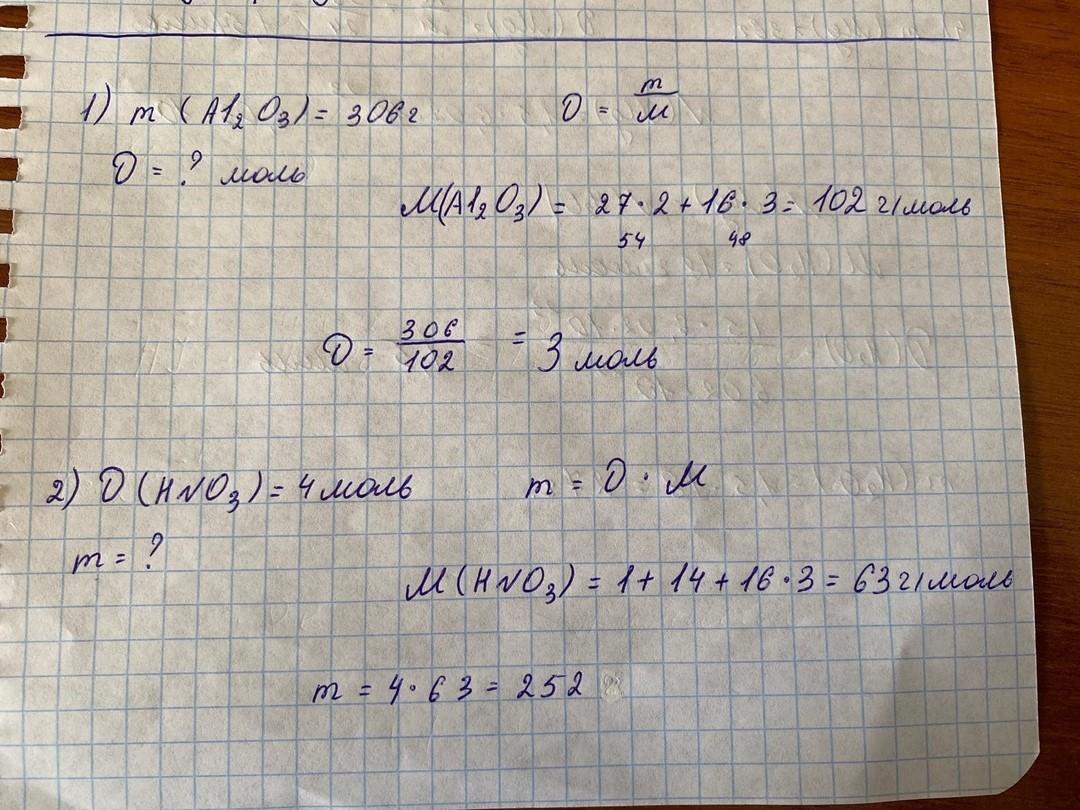 1) m (Al₂O₃) = 306г
υ = m/M
υ = ? моль
M(Al₂O₃) = 27·2 + 16·3 = 102 г/моль
54 48
υ = 306/102 = 3 моль
2) υ (HNO₃) = 4 моль
m = υ · M
m = ?
M (HNO₃) = 1 + 14 + 16·3 = 63 г/моль
m = 4·63 = 252